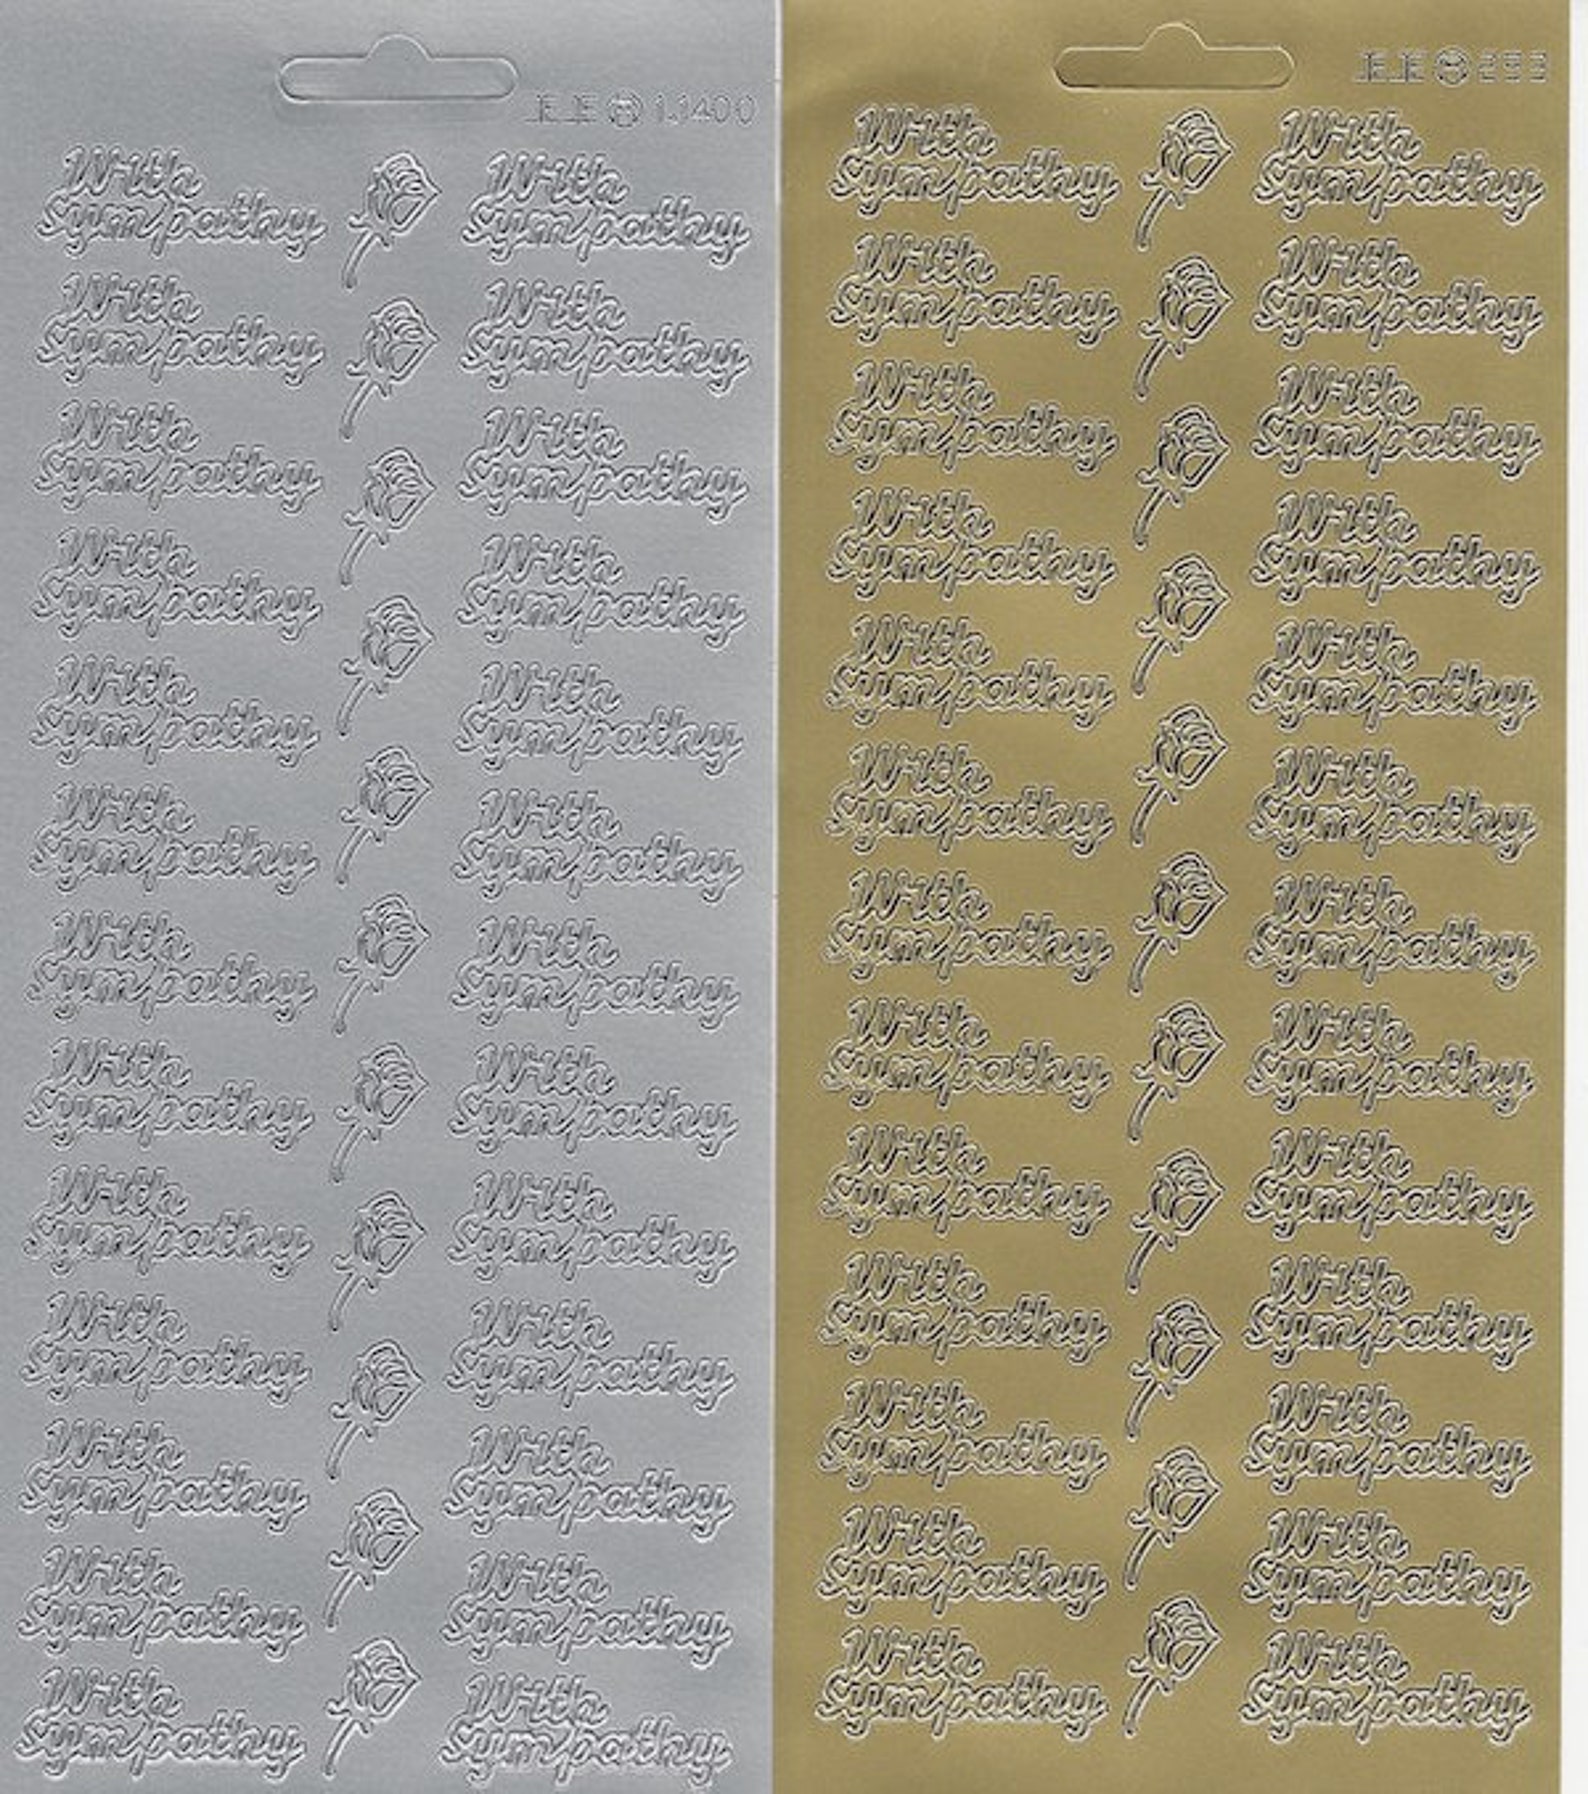 JEJE 1.1400
With
Sympathy
With
Sympathy
With
Sympathy
With
Sympathy
With
Sympathy
With
Sympathy
With
Sympathy
With
Sympathy
With
Sympathy
With
Sympathy
With
Sympathy
With
Sympathy
With
Sympathy
With
Sympathy
With
Sympathy
With
Sympathy
With
Sympathy
With
Sympathy
With
Sympathy
With
Sympathy
With
Sympathy
With
Sympathy
With
Sympathy
With
Sympathy
With
Sympathy
With
Sympathy
JEJE
With
Sympathy
With
Sympathy
With
Sympathy
With
Sympathy
With
Sympathy
With
Sympathy
With
Sympathy
With
Sympathy
With
Sympathy
With
Sympathy
With
Sympathy
With
Sympathy
With
Sympathy
With
Sympathy
With
Sympathy
With
Sympathy
With
Sympathy
With
Sympathy
With
Sympathy
With
Sympathy
With
Sympathy
With
Sympathy
With
Sympathy
With
Sympathy
With
Sympathy
With
Sympathy